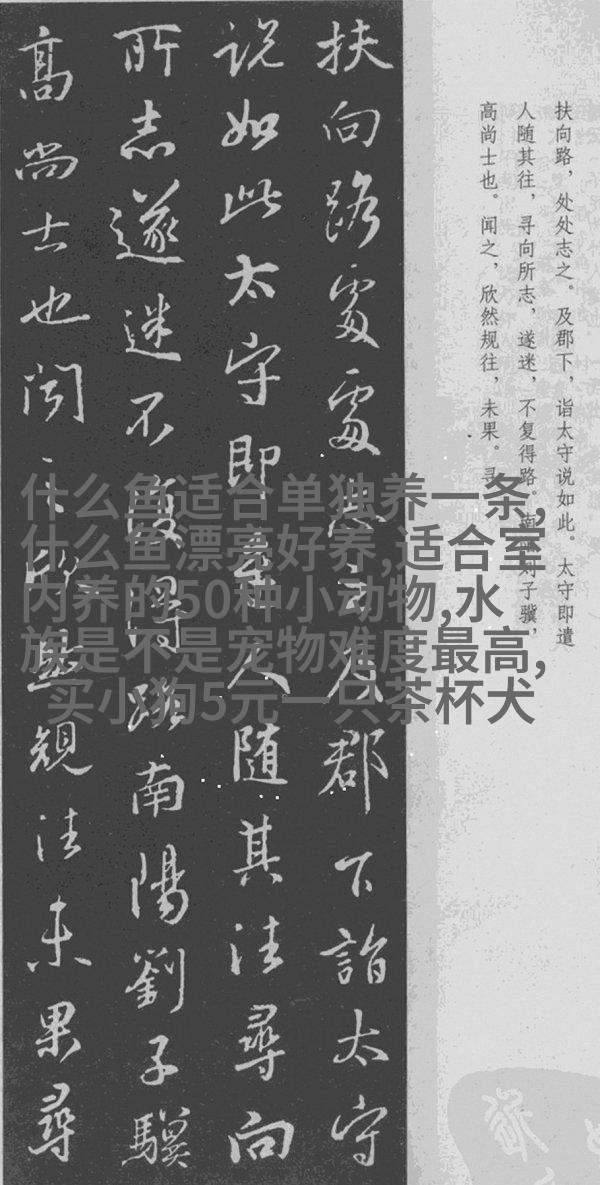 扶向路處處志之及郡下詣太守
说如此太守即遣人随其往尋向
所志遂迷不復得路南陽劉子驥
髙尚士也闻之欣然規往未果尋
扶向路，处处志之。及郡下，诣太守说如此。太守即遣
人随其往，寻向所志，遂迷，不复得路。南阳刘子骥，
高尚士也。闻之，欣然规往，未果。寻
什么鱼适合单独养一条,
什么鱼漂亮好养,适合室
内养的50种小动物,水
旗是不是宠物难度最高,
买小狗5元一只茶杯犬